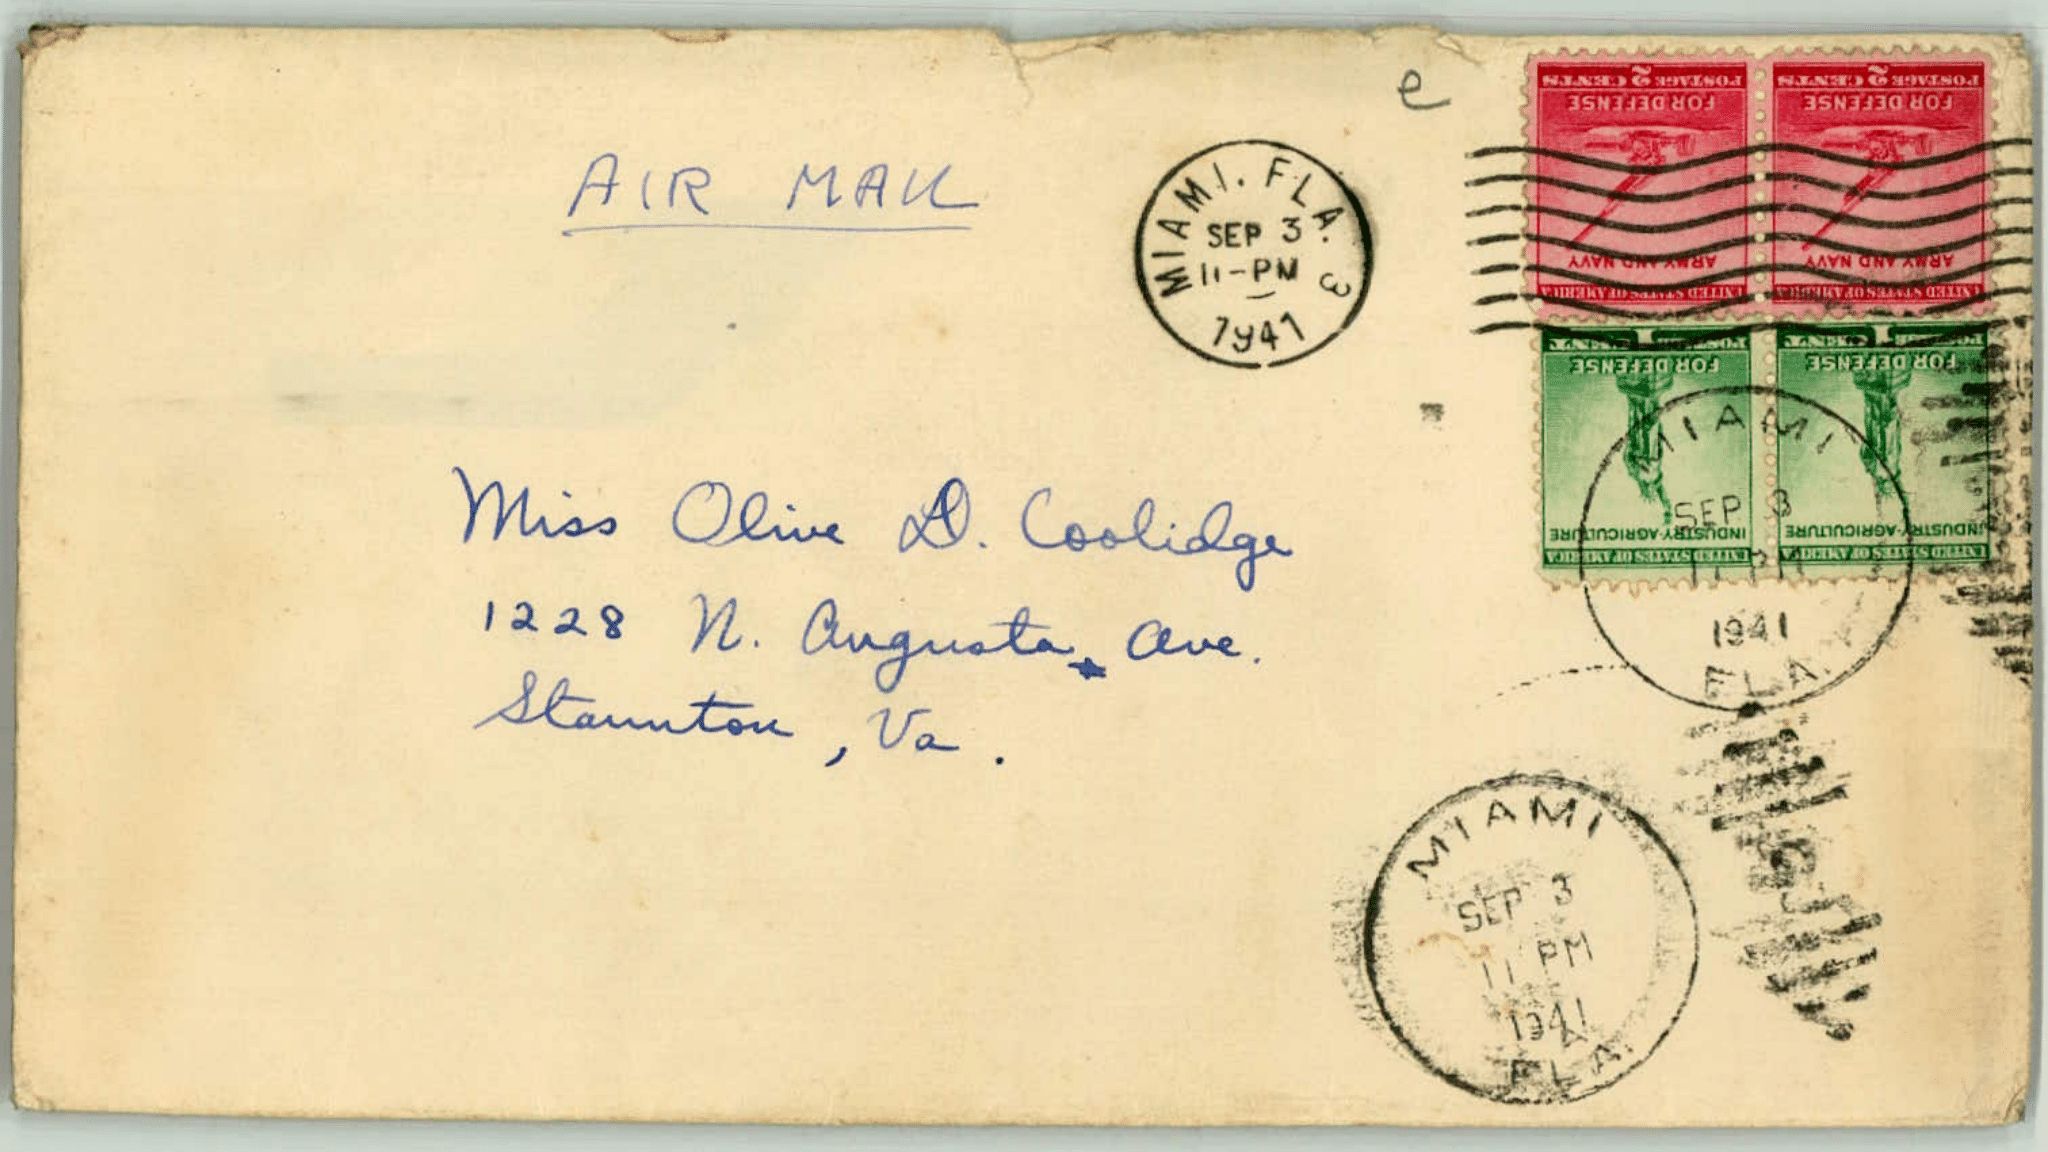 e
AIR MAIL
MIAMI. FLA. 3
SEP 3
11-PM
1941
POSTAGE 2 CENTS
FOR DEFENSE
ARMY AND NAVY
UNITED STATES OF AMERICA
POSTAGE 2 CENTS
FOR DEFENSE
ARMY AND NAVY
UNITED STATES OF AMERICA
FOR DEFENSE
INDUSTRY-AGRICULTURE
UNITED STATES OF AMERICA
FOR DEFENSE
INDUSTRY-AGRICULTURE
UNITED STATES OF AMERICA
MIAMI
SEP 3
11 PM
1941
FLA.
Miss Olive D. Coolidge
1228 N. Augusta Ave.
Staunton, Va.
MIAMI
SEP 3
11 PM
1941
FLA.